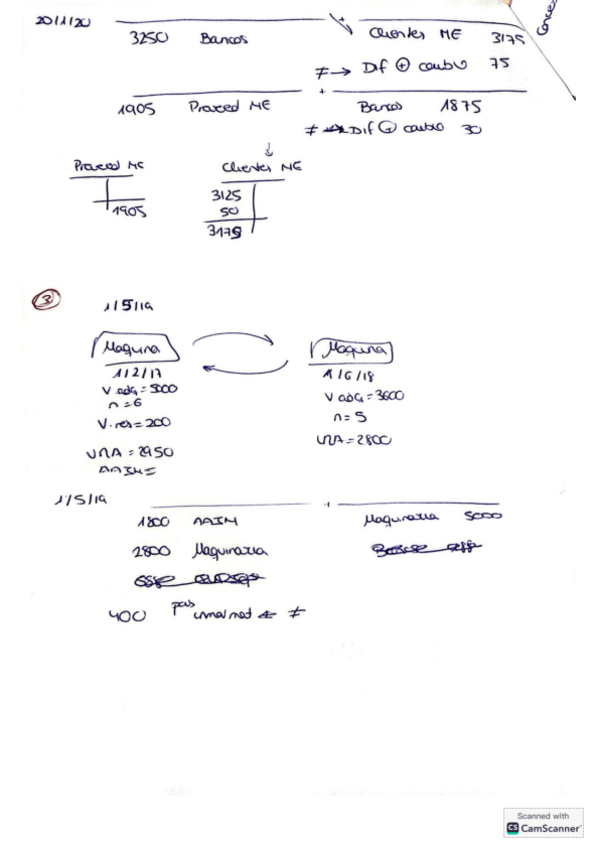 20/1/20
3250 Bancos Clientes ME 3175
≠→ Dif ⊕ cambio 75
1905 Proveed ME Bancos 1875
≠ → Dif ⊕ cambio 30
Proveed ME Clientes ME
1905 3125
50
3175
③ 1/5/19
Maquina Maquina
1/2/17 1/6/18
V. adq = 5000 V adq = 3600
n = 6 n = 5
V. res = 200
VRA = 2950 VRA = 2800
AAIM =
1/5/19
1800 AAIM Maquinaria 5000
2800 Maquinaria
400 ≠
Scanned with
CS CamScanner